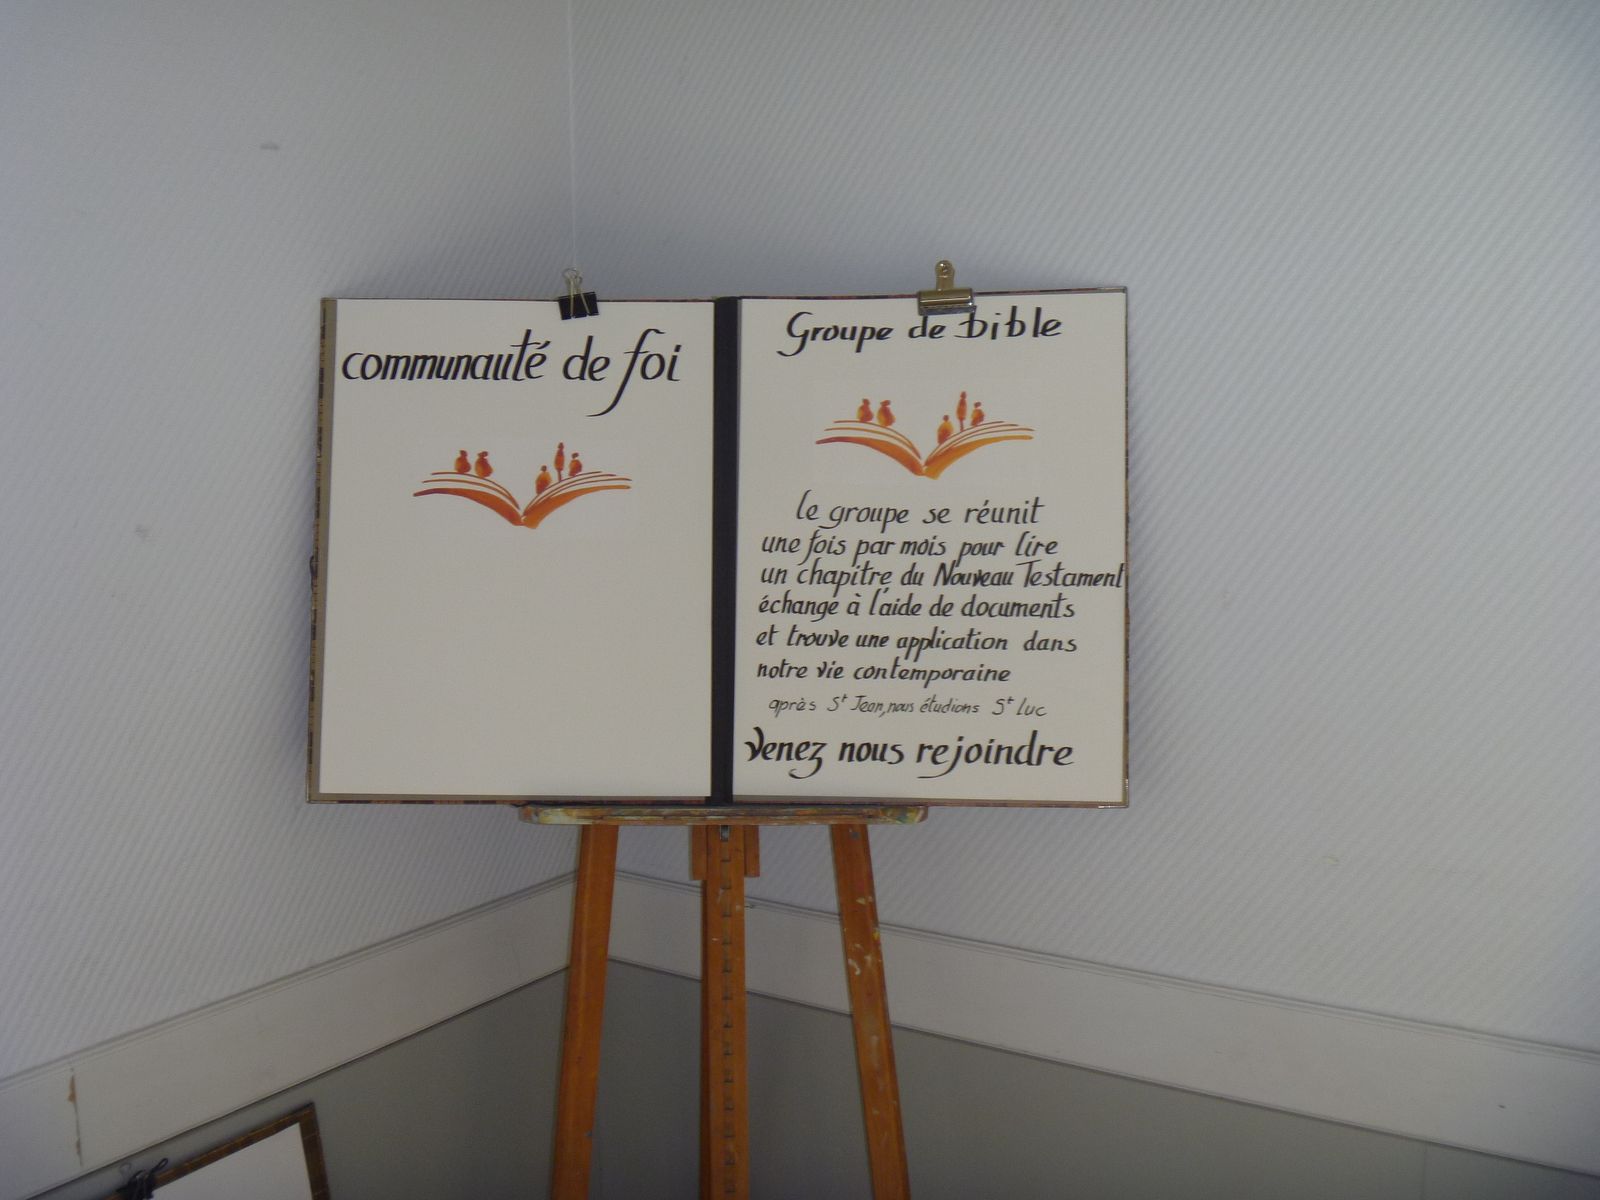 communauté de foi
Groupe de bible
le groupe se réunit
une fois par mois pour lire
un chapitre du Nouveau Testament
échange à l'aide de documents
et trouve une application dans
notre vie contemporaine
après St Jean, nous étudions St Luc
venez nous rejoindre